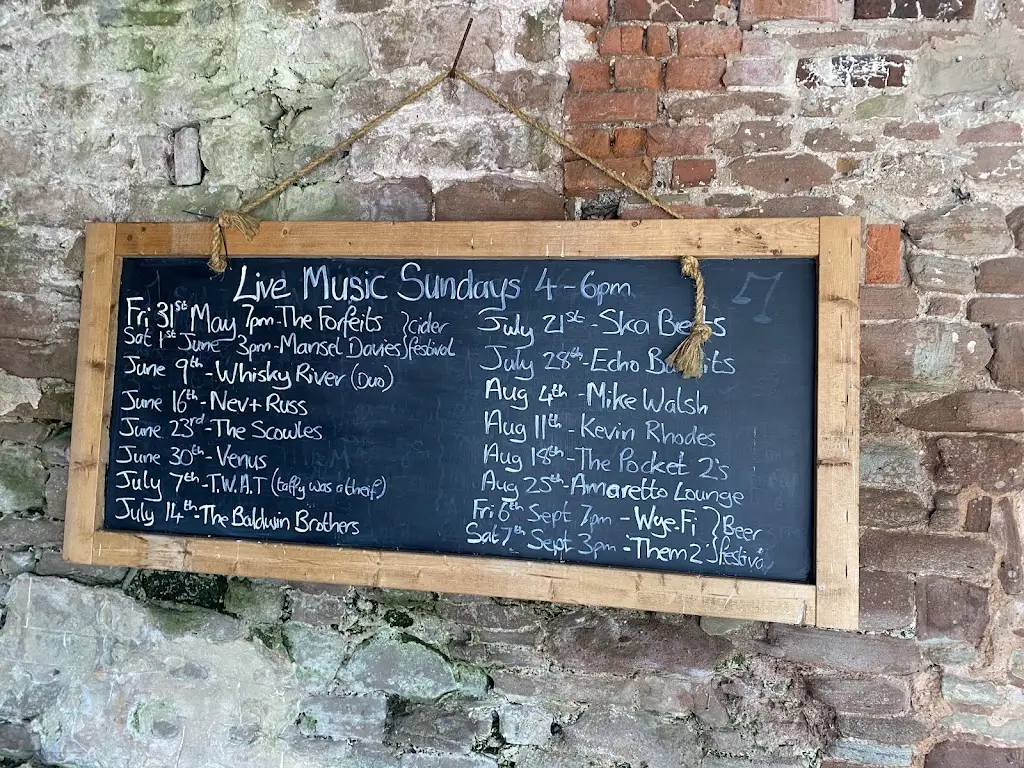 Live Music Sundays 4-6pm
Fri 31st May 7pm-The Forfeits } cider
Sat 1st June 3pm-Mansel Davies } festival
June 9th-Whisky River (Duo)
June 16th-Nev+Russ
June 23rd-The Scowles
June 30th-Venus
July 7th-T.W.A.T (taffy was a theif)
July 14th-The Baldwin Brothers
July 21st-Ska
July 28th-Echo
Aug 4th-Mike Walsh
Aug 11th-Kevin Rhodes
Aug 18th-The Pocket 2's
Aug 25th-Amaretto Lounge
Fri 6th Sept 7pm-Wye-Fi } Beer
Sat 7th Sept 3pm-Them 2's } festival